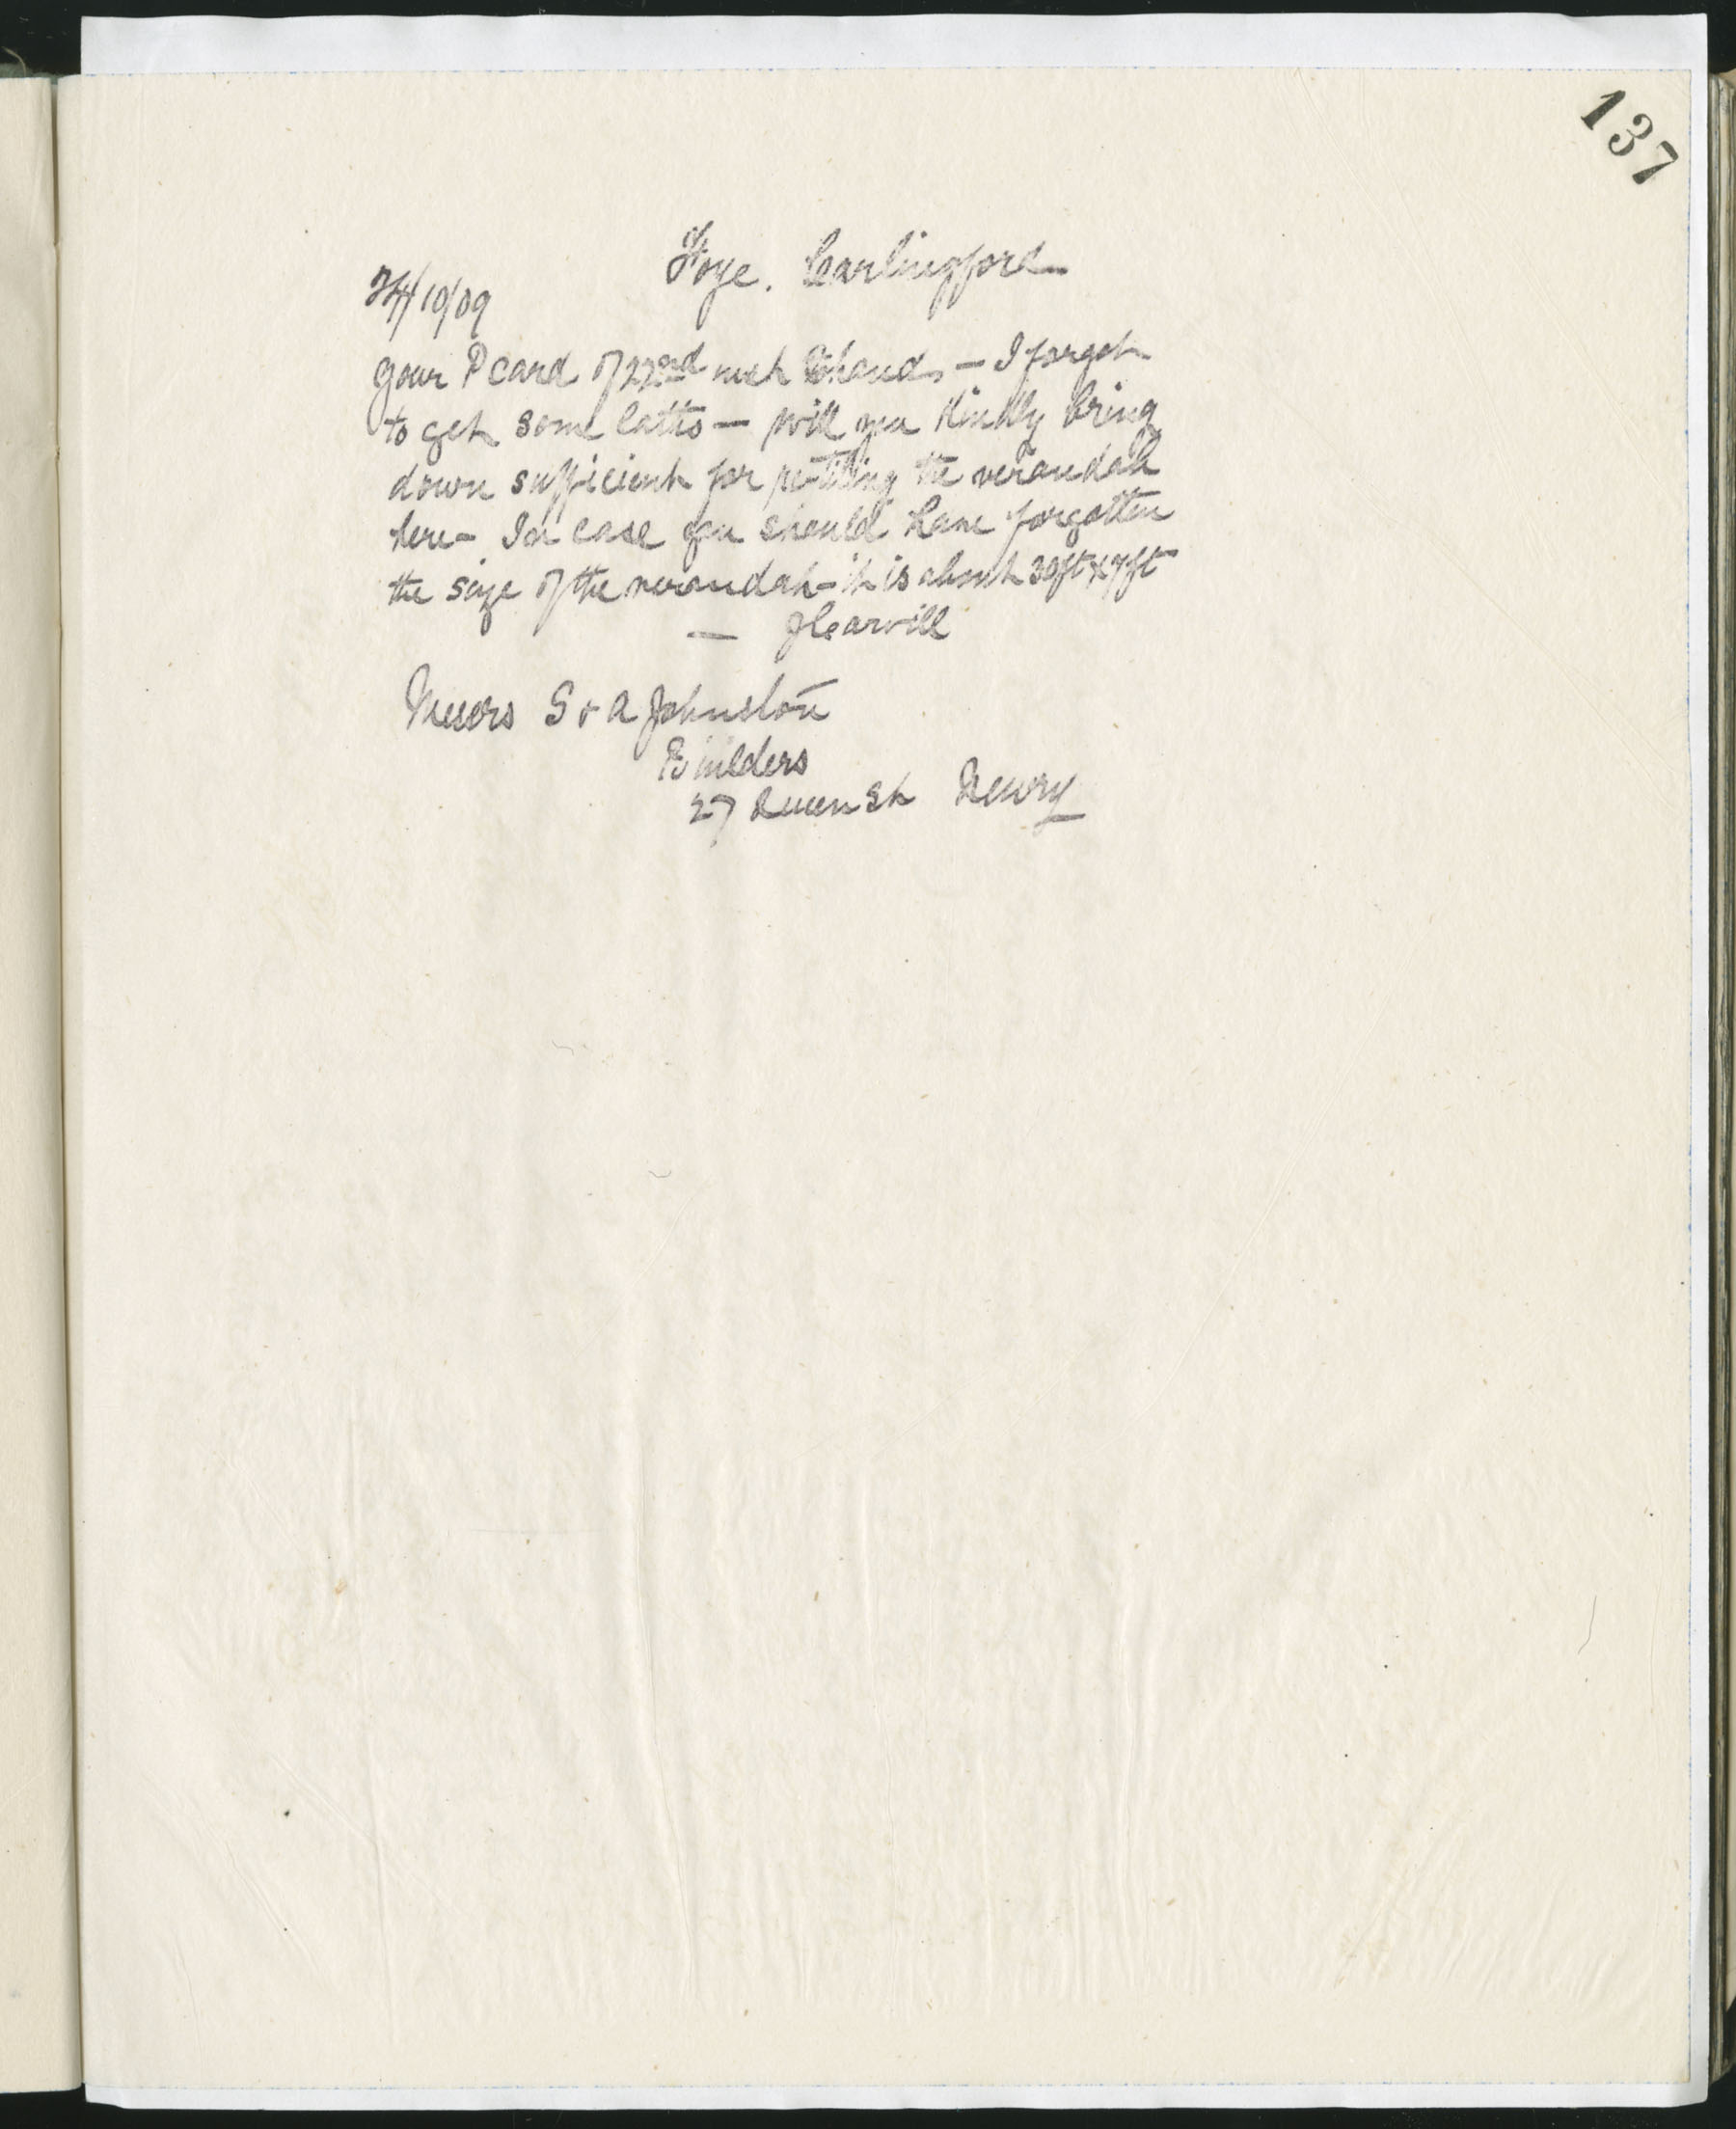 137
Foye. Carlingford
24/10/09
Your P card of 22nd inst to hand, - I forgot
to get some latts — will you kindly bring
down sufficient for re-tiling the verandah
here - In case you should have forgotten
the size of the verandah - it is about 30ft x 7ft
— J Carvill
Messrs S & A Johnston
Builders
27 Queen St Newry